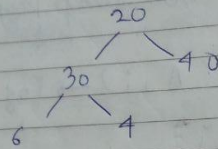 20
30 40
6 4